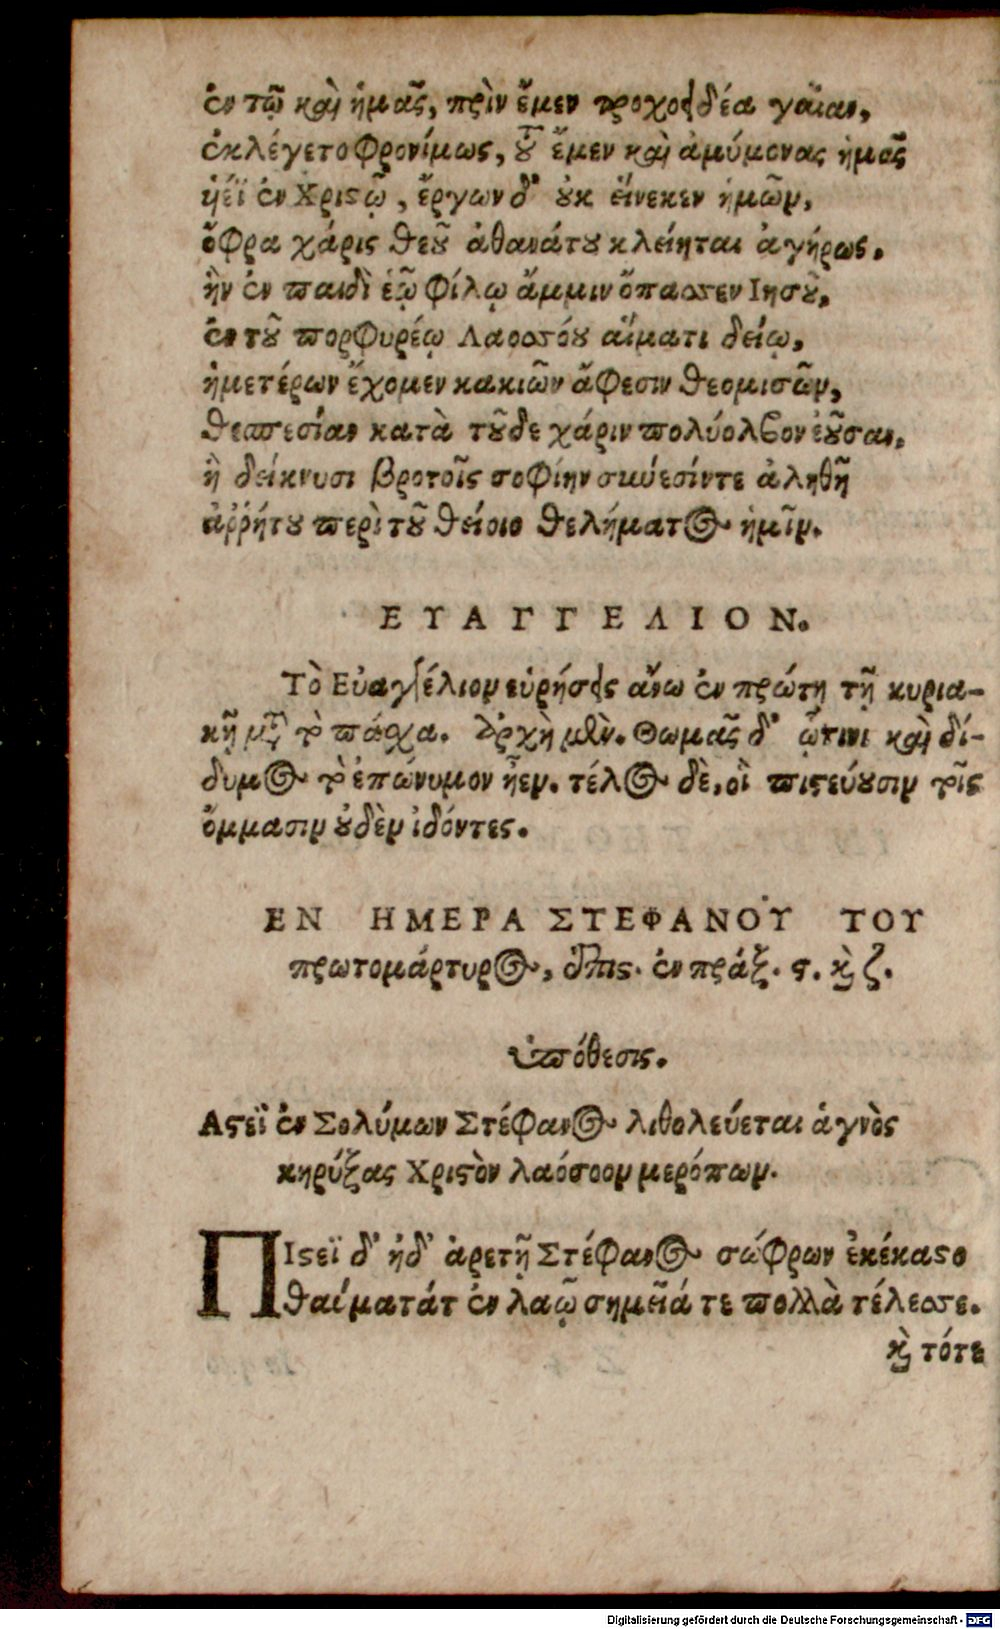 ἐν τῷ καὶ ἡμᾶς, πρὶν ἔμεν τροχοειδέα γαῖαν,
ἐκλέγετο φρονίμως, τοῦ ἔμεν καὶ ἀμύμονας ἡμᾶς
ἠέϊ ἐν Χριστῷ, ἔργων δ' οὐκ εἵνεκεν ἡμῶν,
ὄφρα χάρις θεοῦ ἀθανάτου κλείηται ἀγήρως.
ἣν ἐν παιδὶ ἑῷ φίλῳ ἄμμιν ὄπασσεν Ιησοῦ,
ἐν τοῦ πορφυρέῳ Λαοσσόου αἵματι δείῳ,
ἡμετέρων ἔχομεν κακιῶν ἄφεσιν θεομισῶν,
θεσπεσίαν κατὰ τοῦδε χάριν πολύολβον ἐοῦσαν,
ἣ δείκνυσι βροτοῖς σοφίην σύνεσίντε ἀληθῆ
ἀῤῥήτου περὶ τοῦ θείοιο θελήματος ἡμῖν.
ΕΥΑΓΓΕΛΙΟΝ.
Τὸ Εὐαγγέλιον εὑρήσεις ἄνω ἐν πρώτῃ τῇ κυρια-
κῇ μετὰ τὸ πάσχα. Ἀρχὴ μὲν. Θωμᾶς δ' ᾧτινι καὶ δί-
δυμος τὸ ἐπώνυμον ἦεν. τέλος δὲ, οἳ πιστεύουσιν τοῖς
ὄμμασιν οὐδὲν ἰδόντες.
ΕΝ ΗΜΕΡΑ ΣΤΕΦΑΝΟΥ ΤΟΥ
πρωτομάρτυρος, ἐπις. ἐν πράξ. ς. καὶ ζ.
ὑπόθεσις.
Αστεϊ ἐν Σολύμων Στέφανος λιθολεύεται ἁγνὸς
κηρύξας Χριστὸν λαόσοον μερόπων.
ΠΙστεϊ δ' ἠδ' ἀρετῇ Στέφανος σώφρων ἐκέκαστο
θαύματάτ ἐν λαῷ σημεῖά τε πολλὰ τέλεσσε.
καὶ τότε
Digitalisierung gefördert durch die Deutsche Forschungsgemeinschaft - DFG